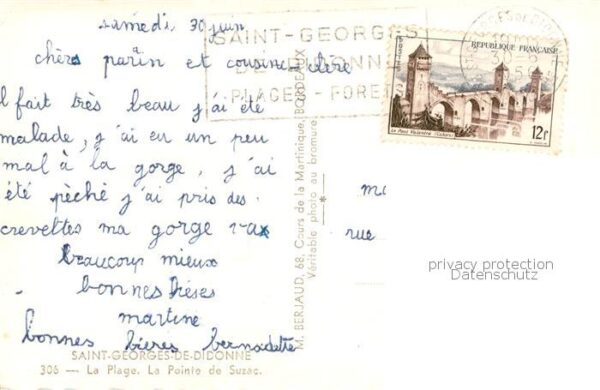 samedi, 30 juin
chèrs parain et cousine-clère
il fait très beau j'ai été
malade, j'ai eu un peu
mal à la gorge, j'ai
été pèché j'ai pris des
crevettes ma gorge vax
beaucoup mieux
bonnes bièses
martine
bonnes bières bernadette
SAINT-GEORGES-DE-DIDONNE
306 — La Plage. La Pointe de Suzac.
M. BERJAUD, 68, Cours de la Martinique, BORDEAUX
Véritable photo au bromure.
SAINT-GEORGES
DE DIDONNE
PLAGES - FORET
30-6
REPUBLIQUE FRANÇAISE
Le Pont Valentré (Cahors)
12f
ma
rue
privacy protection
Datenschutz